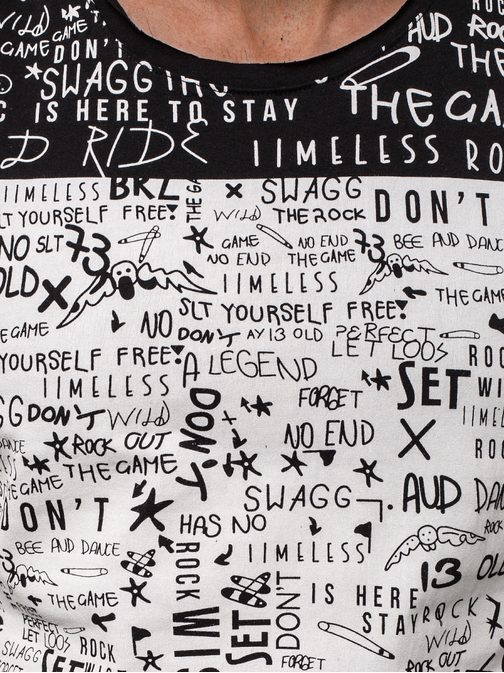 ROCK
WILD
DON'T
THE GAME
SWAGG
AUD ROCK
DON'T
GAME DON'T
SWAGG THE
C IS HERE TO STAY
THE GA
D RIDE
IIMELESS RO
IIMELESS BRZ
THE GA
SWAGG
DON'T
LT YOURSELF FREE!
WILD THE ROCK
NO SLT 73
GAME NO END 73 BEE AND DANCE
NO END THE GAME
OLD X
IIMELESS
THE GAME
SLT YOURSELF FREE!
THE GAME
NO DON'T AY 13 OLD PERFECT
LET LOOS
ROCK
YOURSELF FREE!
A LEGEND
IIMELESS
FORGET
SET
WIS
GG DON'T WILD
DON'T
NO END
X
DANCE
ROCK OUT
THE GAME
IIM
LESS
THE GAME
SWAGG
AUD DANC
DON'T
HAS NO
BEE AND DANCE
ROCK
IIMELESS
13 OLD
THE GAME
WIS
SET
DON'T
IS HERE
STAY
ROCK
WILD
PERFECT
LET LOOS
ROCK
SWAGG
SET
WIS
FORGET
FORGET